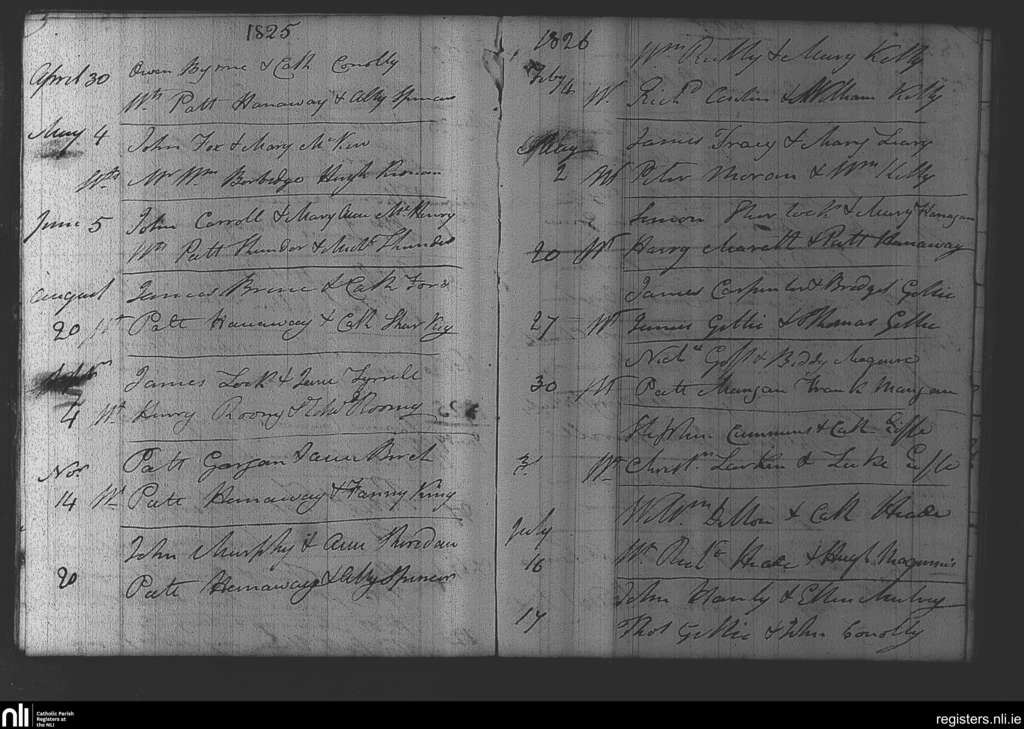 1825
April 30 Owen Byrne & Cath Conolly
Wts Patt Hanaway & Abby Spencer
May 4 John Fox & Mary McKew
Wts Mr Wm Borbidge Hugh
June 5 John Carroll & Mary Ann McHenry
Wts Patt Thunder & Michl Thunder
August James Brine & Cath Fox
20 Wt Patt Hanaway & Cath Sharkey
James Lock & Jane Tyrrell
4 Wt Henry Roony & John Roony
Novr Patt Gargan & Anne Birch
14 Wt Patt Hennaway & Fanny King
John Murphy & Ann Sheredan
20 Patt Hennaway & Abby Spencer
1826
Wm Reilly & Mary Kelly
Feby 4 W. Richd & William Kelly
May James Tracy & Mary Leary
2 Wt Peter Moran & Wm Kelly
Simon Sherlock & Mary Hanagan
20 Wt Harry & Patt Hanaway
James Carpenter & Bridget Gellic
27 Wt James Gellic & Thomas Gellic
Nichs Goff & Biddy Maguire
30 Wt Patt Mangan Frank Mangan
Stephen Cummins & Cath
Wt Christn Larkin & Luke
July Wm Dillon & Cath Heade
16 Wt Richd Heade & Hugh Maginnis
John Hanly & Ellen
17 Thos Gellic & John Conolly
nli
Catholic Parish
Registers at
the NLI
registers.nli.ie